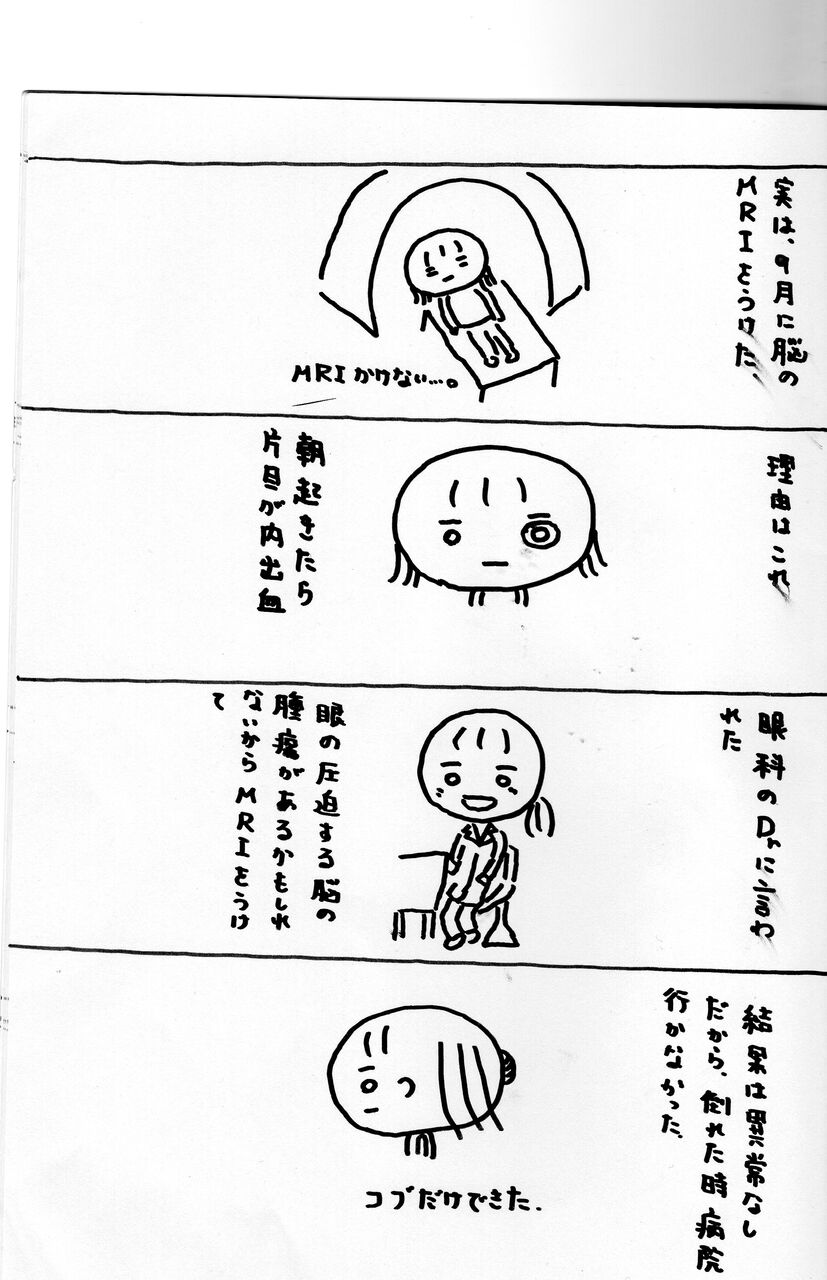 実は、9月に脳の
MRIをうけた、
MRIかけない…。
理由はこれ
朝起きたら
片目が内出血
眼科のDrに言わ
れた
眼の圧迫する脳の
腫瘍があるかもしれ
ないからMRIをうけ
て
結果は異常なし
だから、倒れた時病院
行かなかった、
コブだけできた、